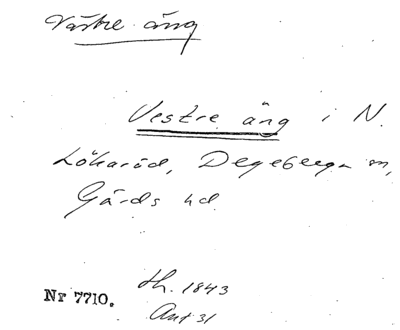 Västre äng
Vestre äng i N.
Lökaröd, Degeberga sn,
Gärds hd
Nr 7710.
th. 1843
Ant 31